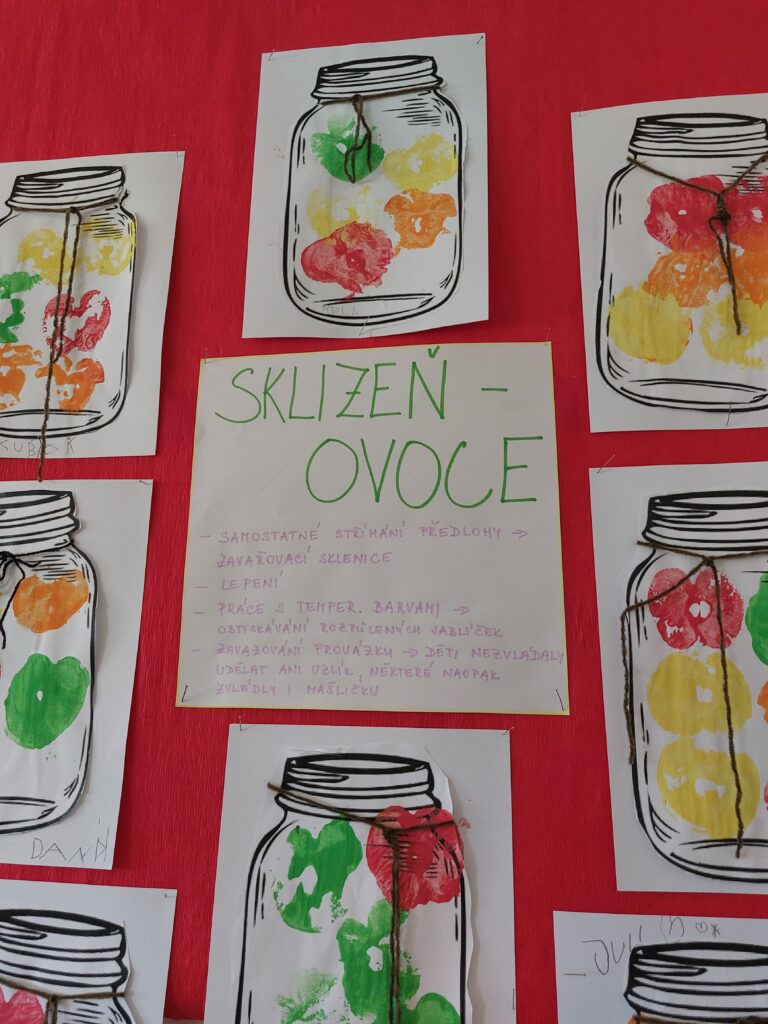 SKLIZEŇ -
OVOCE
- SAMOSTATNÉ STŘÍHÁNÍ PŘEDLOHY →
ZAVAŘOVACÍ SKLENICE
- LEPENÍ
- PRÁCE S TEMPER. BARVAMI →
OBTISKÁVÁNÍ ROZPŮLENÝCH JABLÍČEK
- ZAVAZOVÁNÍ PROVÁZKU → DĚTI NEZVLÁDALY
UDĚLAT ANI UZLÍK, NĚKTERÉ NAOPAK
ZVLÁDLY I MAŠLIČKU